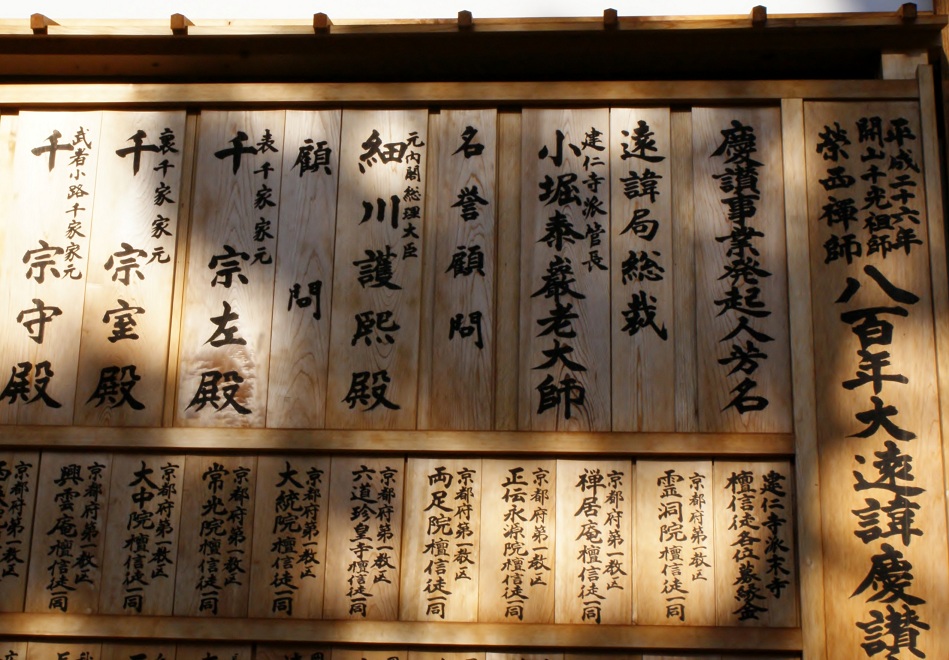 平成二十六年
開山千光祖師
栄西禅師
八百年大遠諱慶讃
慶讃事業発起人芳名
遠諱局総裁
建仁寺派管長
小堀泰巖老大師
名誉顧問
元内閣総理大臣
細川護熙殿
顧問
表千家家元
千宗左殿
裏千家家元
千宗室殿
武者小路千家家元
千宗守殿
建仁寺派末寺
檀信徒各位募縁金
京都府第一教区
霊洞院檀信徒一同
京都府第一教区
禅居庵檀信徒一同
京都府第一教区
正伝永源院檀信徒一同
京都府第一教区
両足院檀信徒一同
京都府第一教区
六道珍皇寺檀信徒一同
京都府第一教区
大統院檀信徒一同
京都府第一教区
常光院檀信徒一同
京都府第一教区
大中院檀信徒一同
京都府第一教区
興雲庵檀信徒一同
京都府第一教区